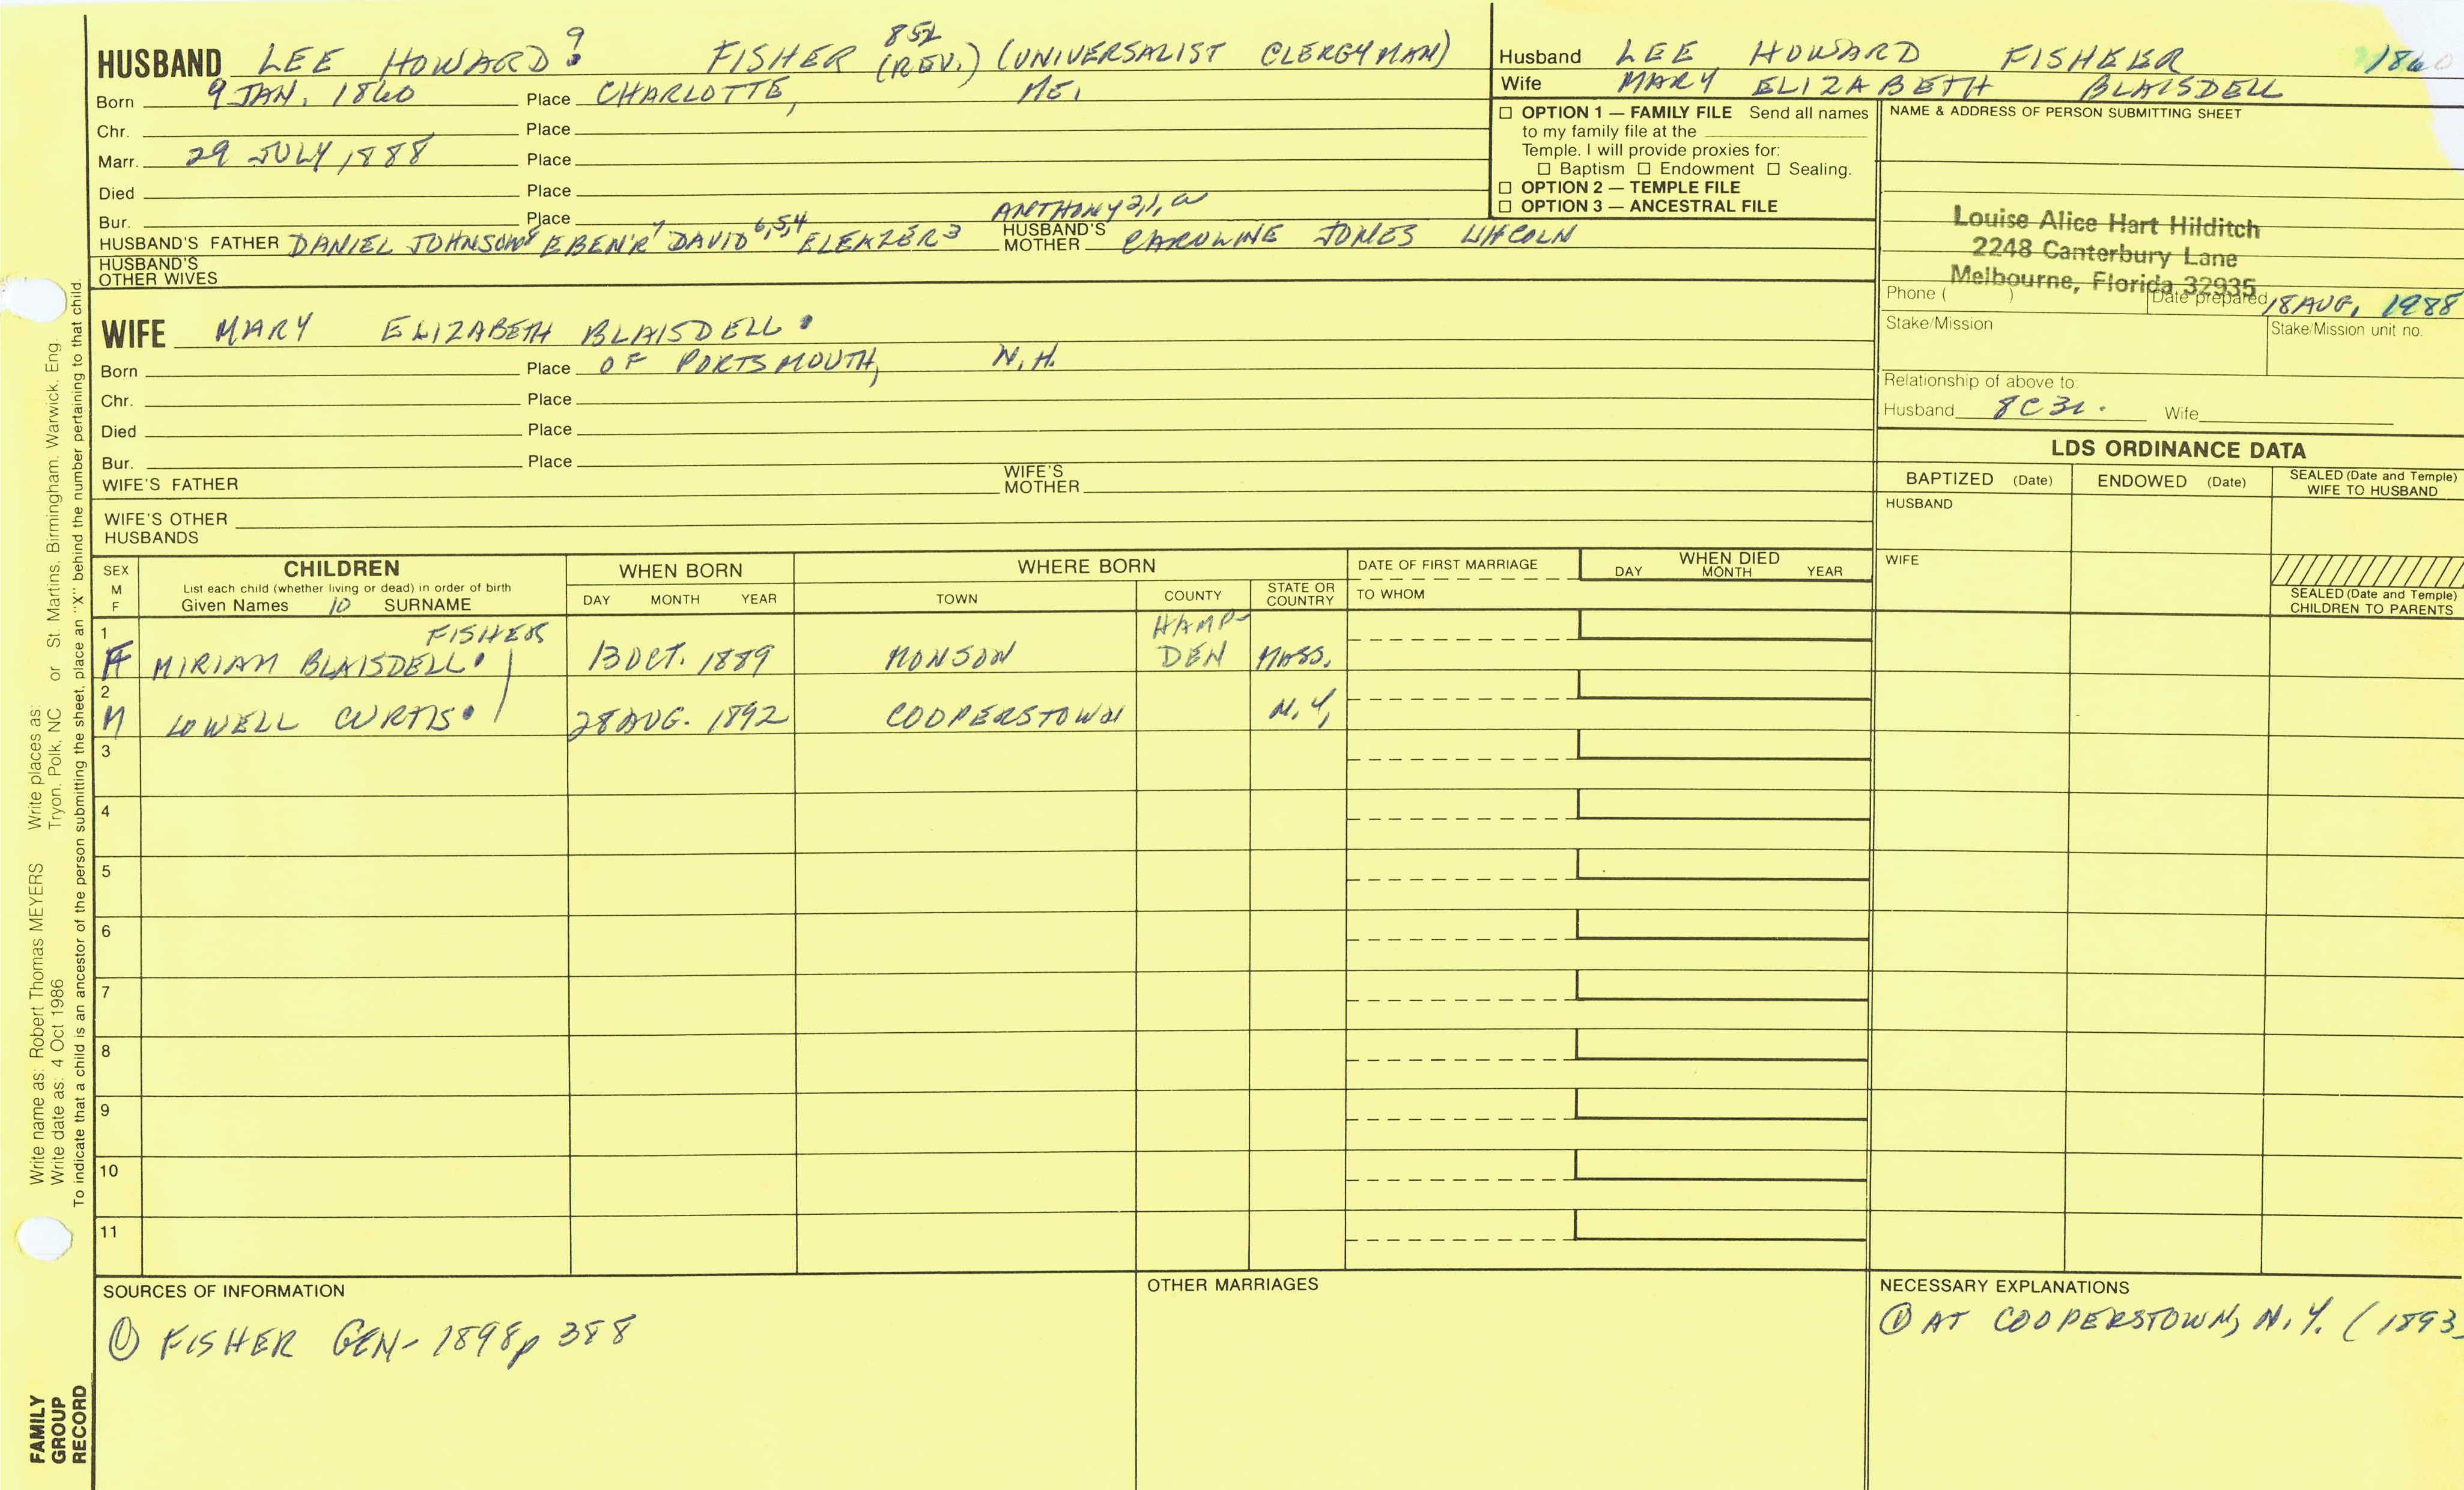 HUSBAND LEE HOWARD 9 FISHER 852 (REV.) (UNIVERSALIST CLERGYMAN)
Born 9 JAN. 1860 Place CHARLOTTE, ME.
Chr. Place
Marr. 29 JULY 1888 Place
Died Place
Bur. Place
HUSBAND'S FATHER DANIEL JOHNSON8 EBEN'R7 DAVID6,5,4 ELEAZER3 ANTHONY2,1,
HUSBAND'S MOTHER CAROLINE JONES LINCOLN
HUSBAND'S OTHER WIVES
WIFE MARY ELIZABETH BLAISDELL
Born Place OF PORTSMOUTH, N.H.
Chr. Place
Died Place
Bur. Place
WIFE'S FATHER WIFE'S MOTHER
WIFE'S OTHER HUSBANDS
Husband LEE HOWARD FISHER 1860
Wife MARY ELIZABETH BLAISDELL
☐ OPTION 1 — FAMILY FILE Send all names
to my family file at the
Temple. I will provide proxies for:
☐ Baptism ☐ Endowment ☐ Sealing.
☐ OPTION 2 — TEMPLE FILE
☐ OPTION 3 — ANCESTRAL FILE
NAME & ADDRESS OF PERSON SUBMITTING SHEET
Louise Alice Hart Hilditch
2248 Canterbury Lane
Melbourne, Florida 32935
Phone ( ) Date prepared 18 AUG, 1988
Stake/Mission Stake/Mission unit no.
Relationship of above to:
Husband 8C3R. Wife
LDS ORDINANCE DATA
BAPTIZED (Date) ENDOWED (Date) SEALED (Date and Temple) WIFE TO HUSBAND
HUSBAND
WIFE
SEALED (Date and Temple) CHILDREN TO PARENTS
SEX M F
CHILDREN
List each child (whether living or dead) in order of birth
Given Names 10 SURNAME
WHEN BORN
DAY MONTH YEAR
WHERE BORN
TOWN COUNTY STATE OR COUNTRY
DATE OF FIRST MARRIAGE
TO WHOM
WHEN DIED
DAY MONTH YEAR
1 FISHER
F MIRIAM BLAISDELL 13 OCT. 1889 MONSON HAMPDEN MASS.
2
M LOWELL CURTIS 28 AUG. 1892 COOPERSTOWN N.Y.
3
4
5
6
7
8
9
10
11
SOURCES OF INFORMATION
① FISHER GEN- 1898 p 388
OTHER MARRIAGES
NECESSARY EXPLANATIONS
① AT COOPERSTOWN, N.Y. (1893
Write places as: Tryon, Polk, NC or St. Martins, Birmingham, Warwick, Eng.
Write name as: Robert Thomas MEYERS
Write date as: 4 Oct 1986
To indicate that a child is an ancestor of the person submitting the sheet, place an "X" behind the number pertaining to that child.
FAMILY
GROUP
RECORD